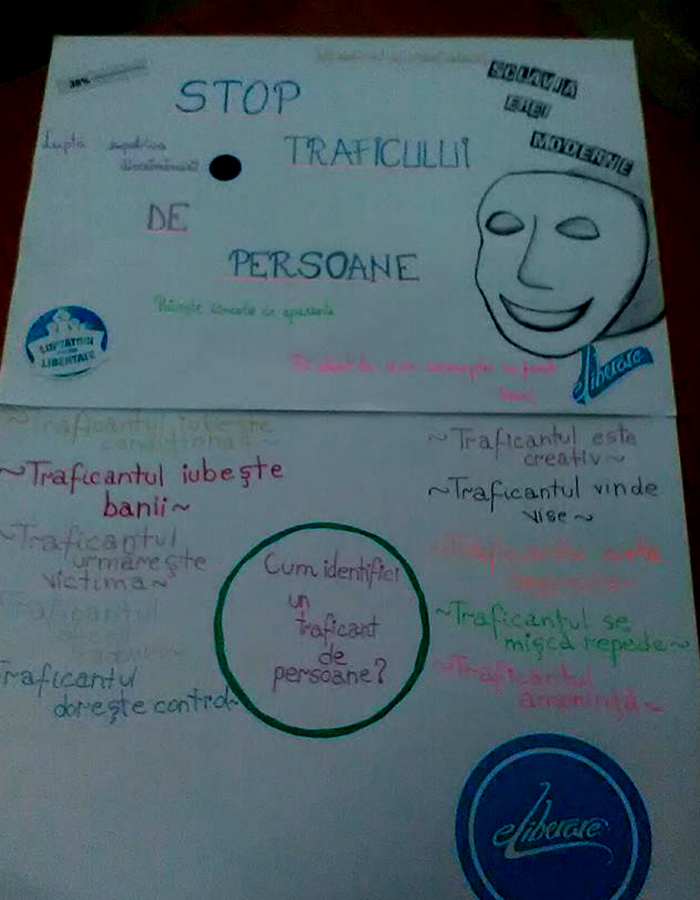 30%
STOP
SCLAVIA
EREI
MODERNE
Luptă împotriva
discriminării
TRAFICULUI
DE
PERSOANE
Privește dincolo de aparențe
LUPTĂTORI
LIBERTATE
eLiberare
~Traficantul iubește
condiționat~
~Traficantul iubește
banii~
~Traficantul
urmărește
victima~
Traficantul
Traficantul
dorește control~
Cum identifici
un
traficant
de
persoane?
~Traficantul este
creativ~
~Traficantul vinde
vise~
~Traficantul
~Traficantul se
mișcă repede~
~Traficantul
amenință~
eLiberare